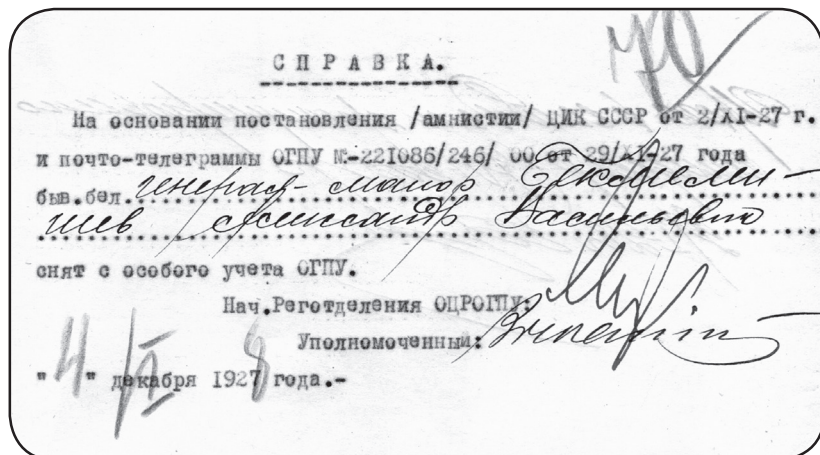 70
СПРАВКА.
На основании постановления /амнистии/ ЦИК СССР от 2/XI-27 г.
и почто-телеграммы ОГПУ №-221086/246/ ОО от 29/XI-27 года
быв.бел. генерал-майор Бекомели-
шев Александр Васильевич
снят с особого учета ОГПУ.
Нач.Реготделения ОЦРОГПУ:
Уполномоченный:
"4" декабря 1927 года.-